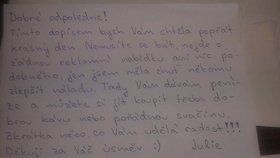 Dobré odpoledne!
Tímto dopisem bych Vám chtěla popřát
krásný den. Nemusíte se bát, nejde o
žádnou reklamní nabídku ani nic po-
dobného, jen jsem měla chuť někomu
zlepšit náladu. Tady Vám dávám pení-
ze a můžete si jít koupit třeba do-
brou kávu nebo pořádnou svačinu
zkrátka něco, co Vám udělá radost!!!
Děkuji za Váš úsměv :) Julie